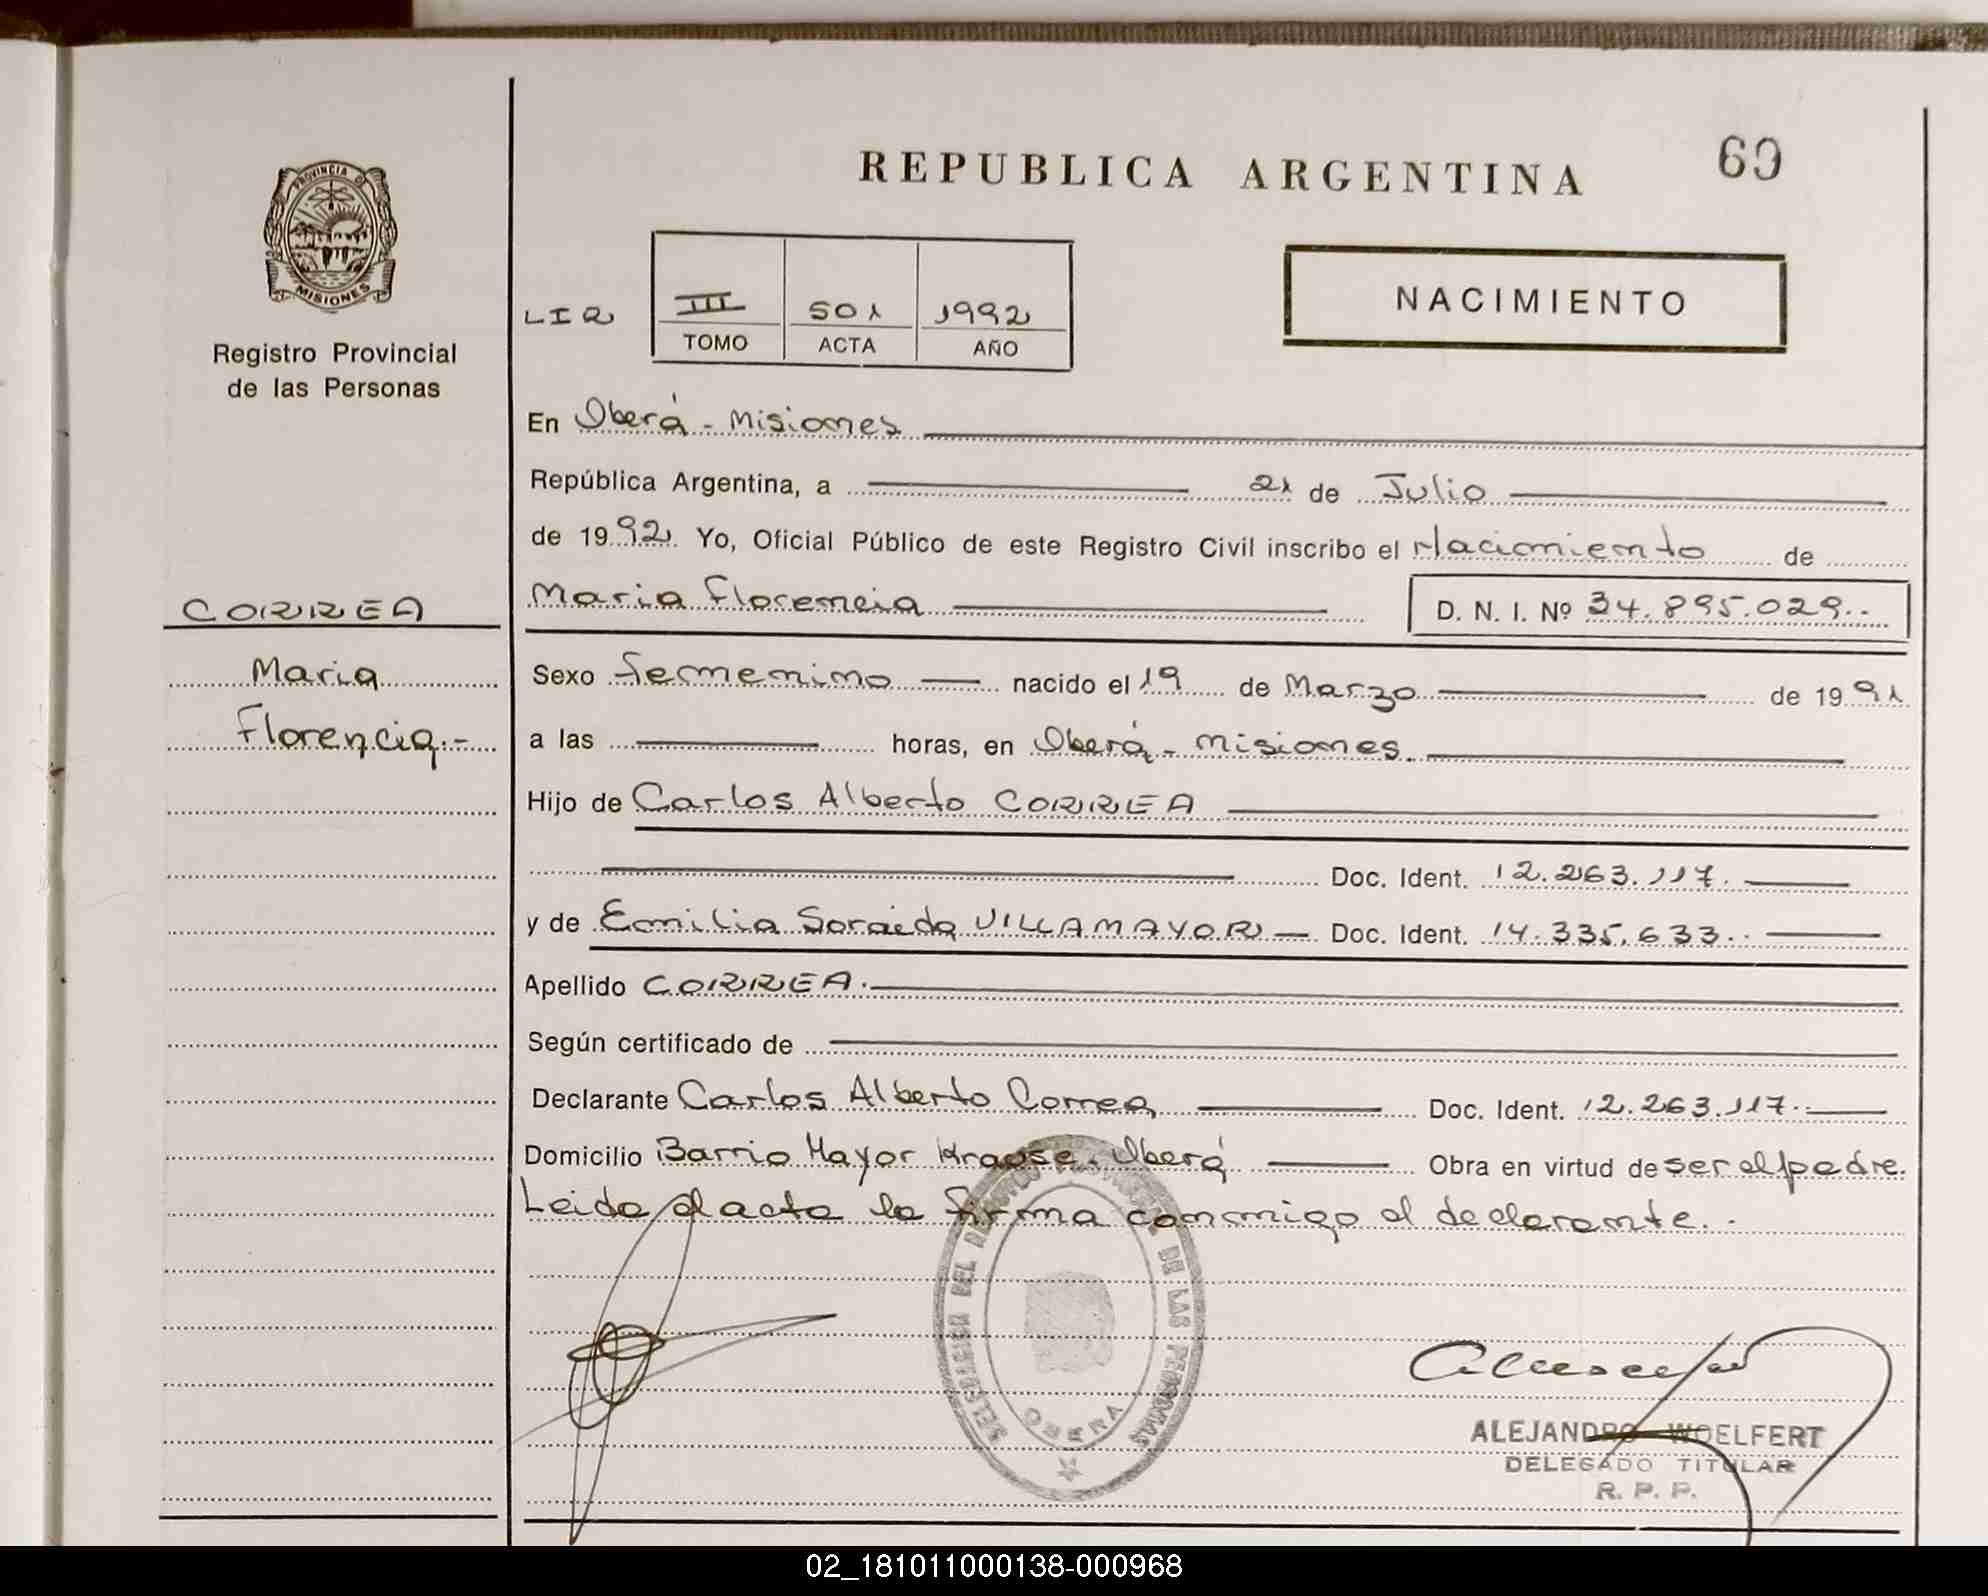 REPUBLICA ARGENTINA
60
PROVINCIA D
MISIONES
Registro Provincial
de las Personas
LIQ
III 501 1992
TOMO ACTA AÑO
NACIMIENTO
En Oberá - Misiones
República Argentina, a 21 de Julio
de 1992. Yo, Oficial Público de este Registro Civil inscribo el Nacimiento de
Maria Florencia D. N. I. Nº 34.895.029..
CORREA
Maria
Florencia.-
Sexo femenino nacido el 19 de Marzo de 1991
a las horas, en Oberá - Misiones.
Hijo de Carlos Alberto CORREA
Doc. Ident. 12.263.117.
y de Emilia Soraida VILLAMAYOR Doc. Ident. 14.335.633.
Apellido CORREA.
Según certificado de
Declarante Carlos Alberto Correa Doc. Ident. 12.263.117.
Domicilio Barrio Mayor Krause. Oberá Obra en virtud de ser el padre.
Leida el acta la firma conmigo el declarante..
DELEGACION DEL REGISTRO PROVINCIAL DE LAS PERSONAS
OBERA
ALEJANDRO WOELFERT
DELEGADO TITULAR
R. P. P.
02_181011000138-000968